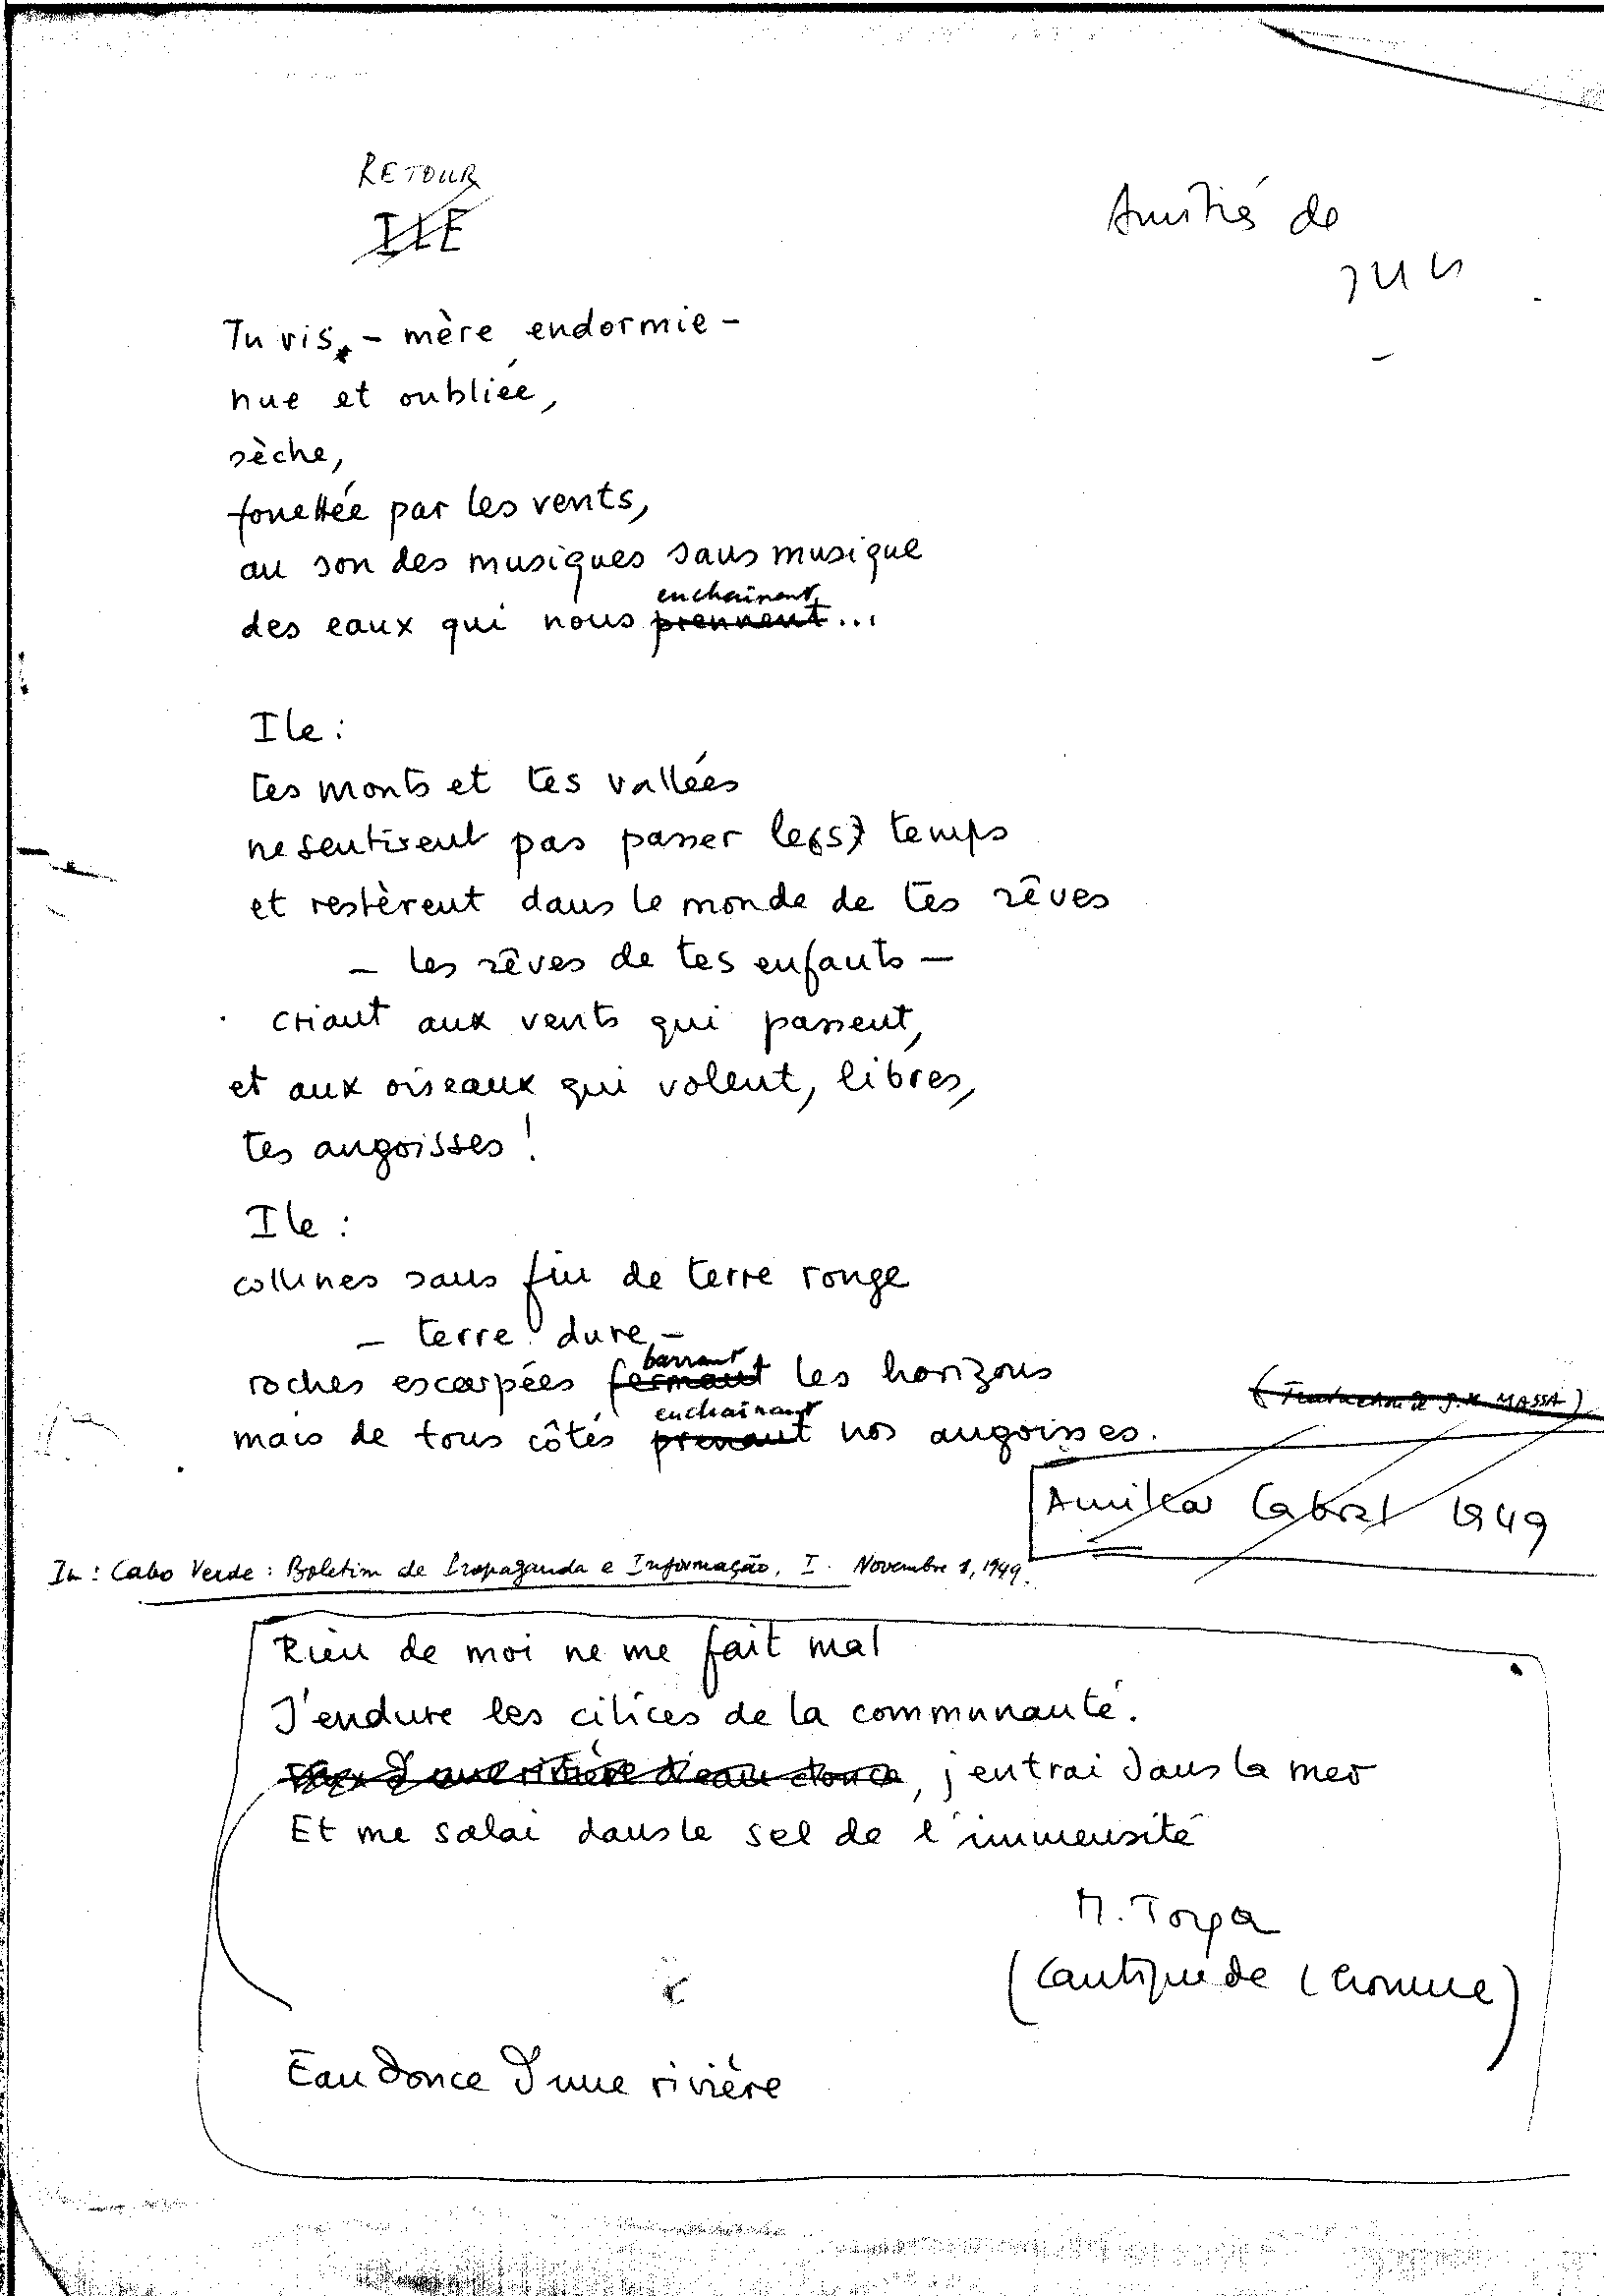 RETOUR
ILE
Amitiés de
Tu vis, - mère endormie -
nue et oubliée,
sèche,
fouettée par les vents,
au son des musiques sans musique
enchaînent
des eaux qui nous prennent...
Ile :
tes monts et tes vallées
ne sentirent pas passer le(s) temps
et restèrent dans le monde de tes rêves
- les rêves de tes enfants -
criant aux vents qui passent,
et aux oiseaux qui volent, libres,
tes angoisses !
Ile :
collines sans fin de terre rouge
- terre dure -
barrant
roches escarpées fermant les horizons
(Traduction de J.M. MASSA)
enchaînant
mais de tous côtés prenant nos angoisses.
Amilcar Cabral 1949
In : Cabo Verde : Boletim de Propaganda e Informação, I. Novembre 1, 1949.
Rien de moi ne me fait mal
J'endure les cilices de la communauté.
d'une rivière d'eau douce, j'entrai dans la mer
Et me salai dans le sel de l'immensité
M. Torga
(Cantique de l'homme)
Eau douce d'une rivière